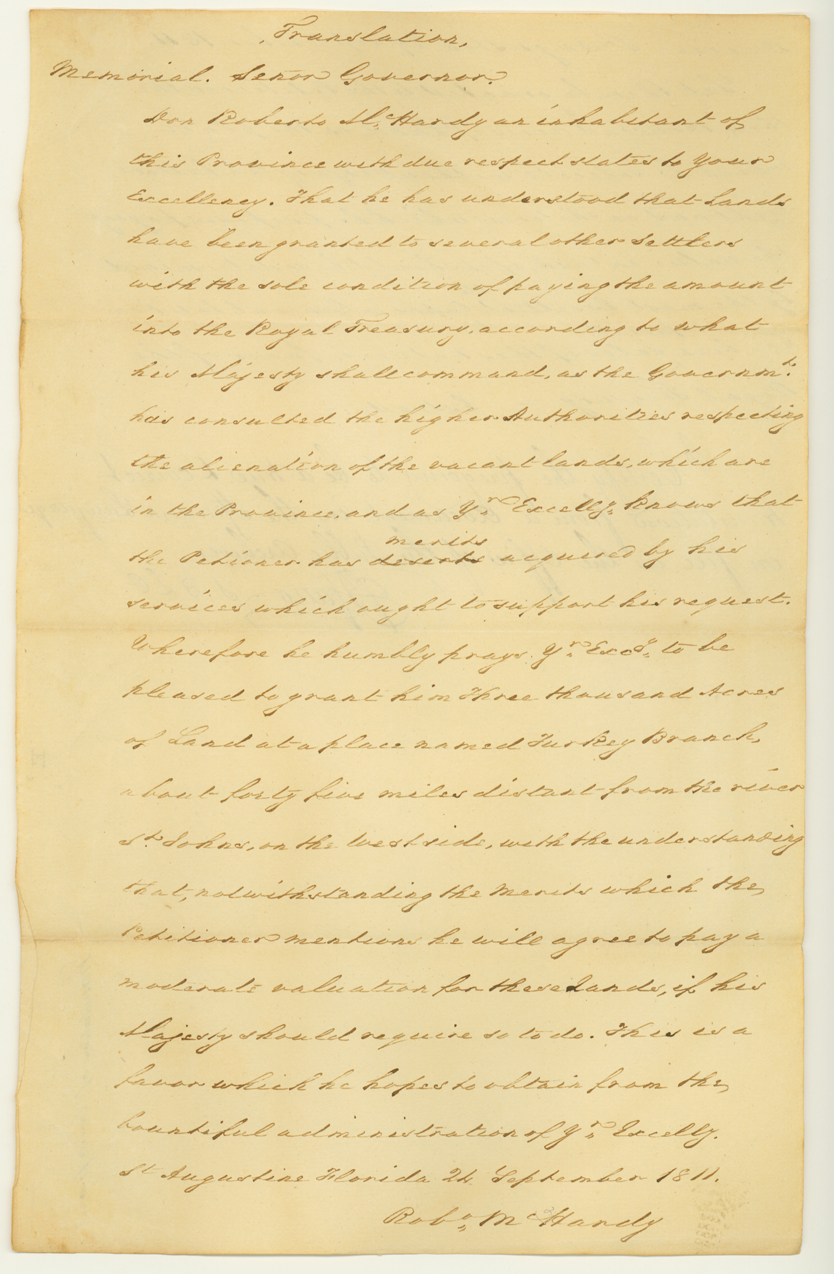 Translation,
Memorial. Senor Governor.
Don Roberto McHardy an inhabitant of
this Province with due respect states to Your
Excellency. That he has understood that Lands
have been granted to several other Settlers
with the sole condition of paying the amount
into the Royal Treasury, according to what
his Majesty shall command, as the Governmt.
has consulted the higher Authorities respecting
the alienation of the vacant lands, which are
in the Province, and as Yr. Excelly. knows that
merits
the Petioner has deserts acquired by his
services which ought to support his request.
Wherefore he humbly prays Yr. Excy. to be
pleased to grant him Three thousand Acres
of Land at a place named Turkey Branch,
about forty five miles distant from the river
St. Johns, on the West side, with the understanding
that, notwithstanding the merits which the
Petitioner mentions he will agree to pay a
moderate valuation for these Lands, if his
Majesty should require so to do. This is a
favor which he hopes to obtain from the
bountiful administration of Yr. Excelly.
St Augustine Florida 24 September 1811.
Robo. McHardy